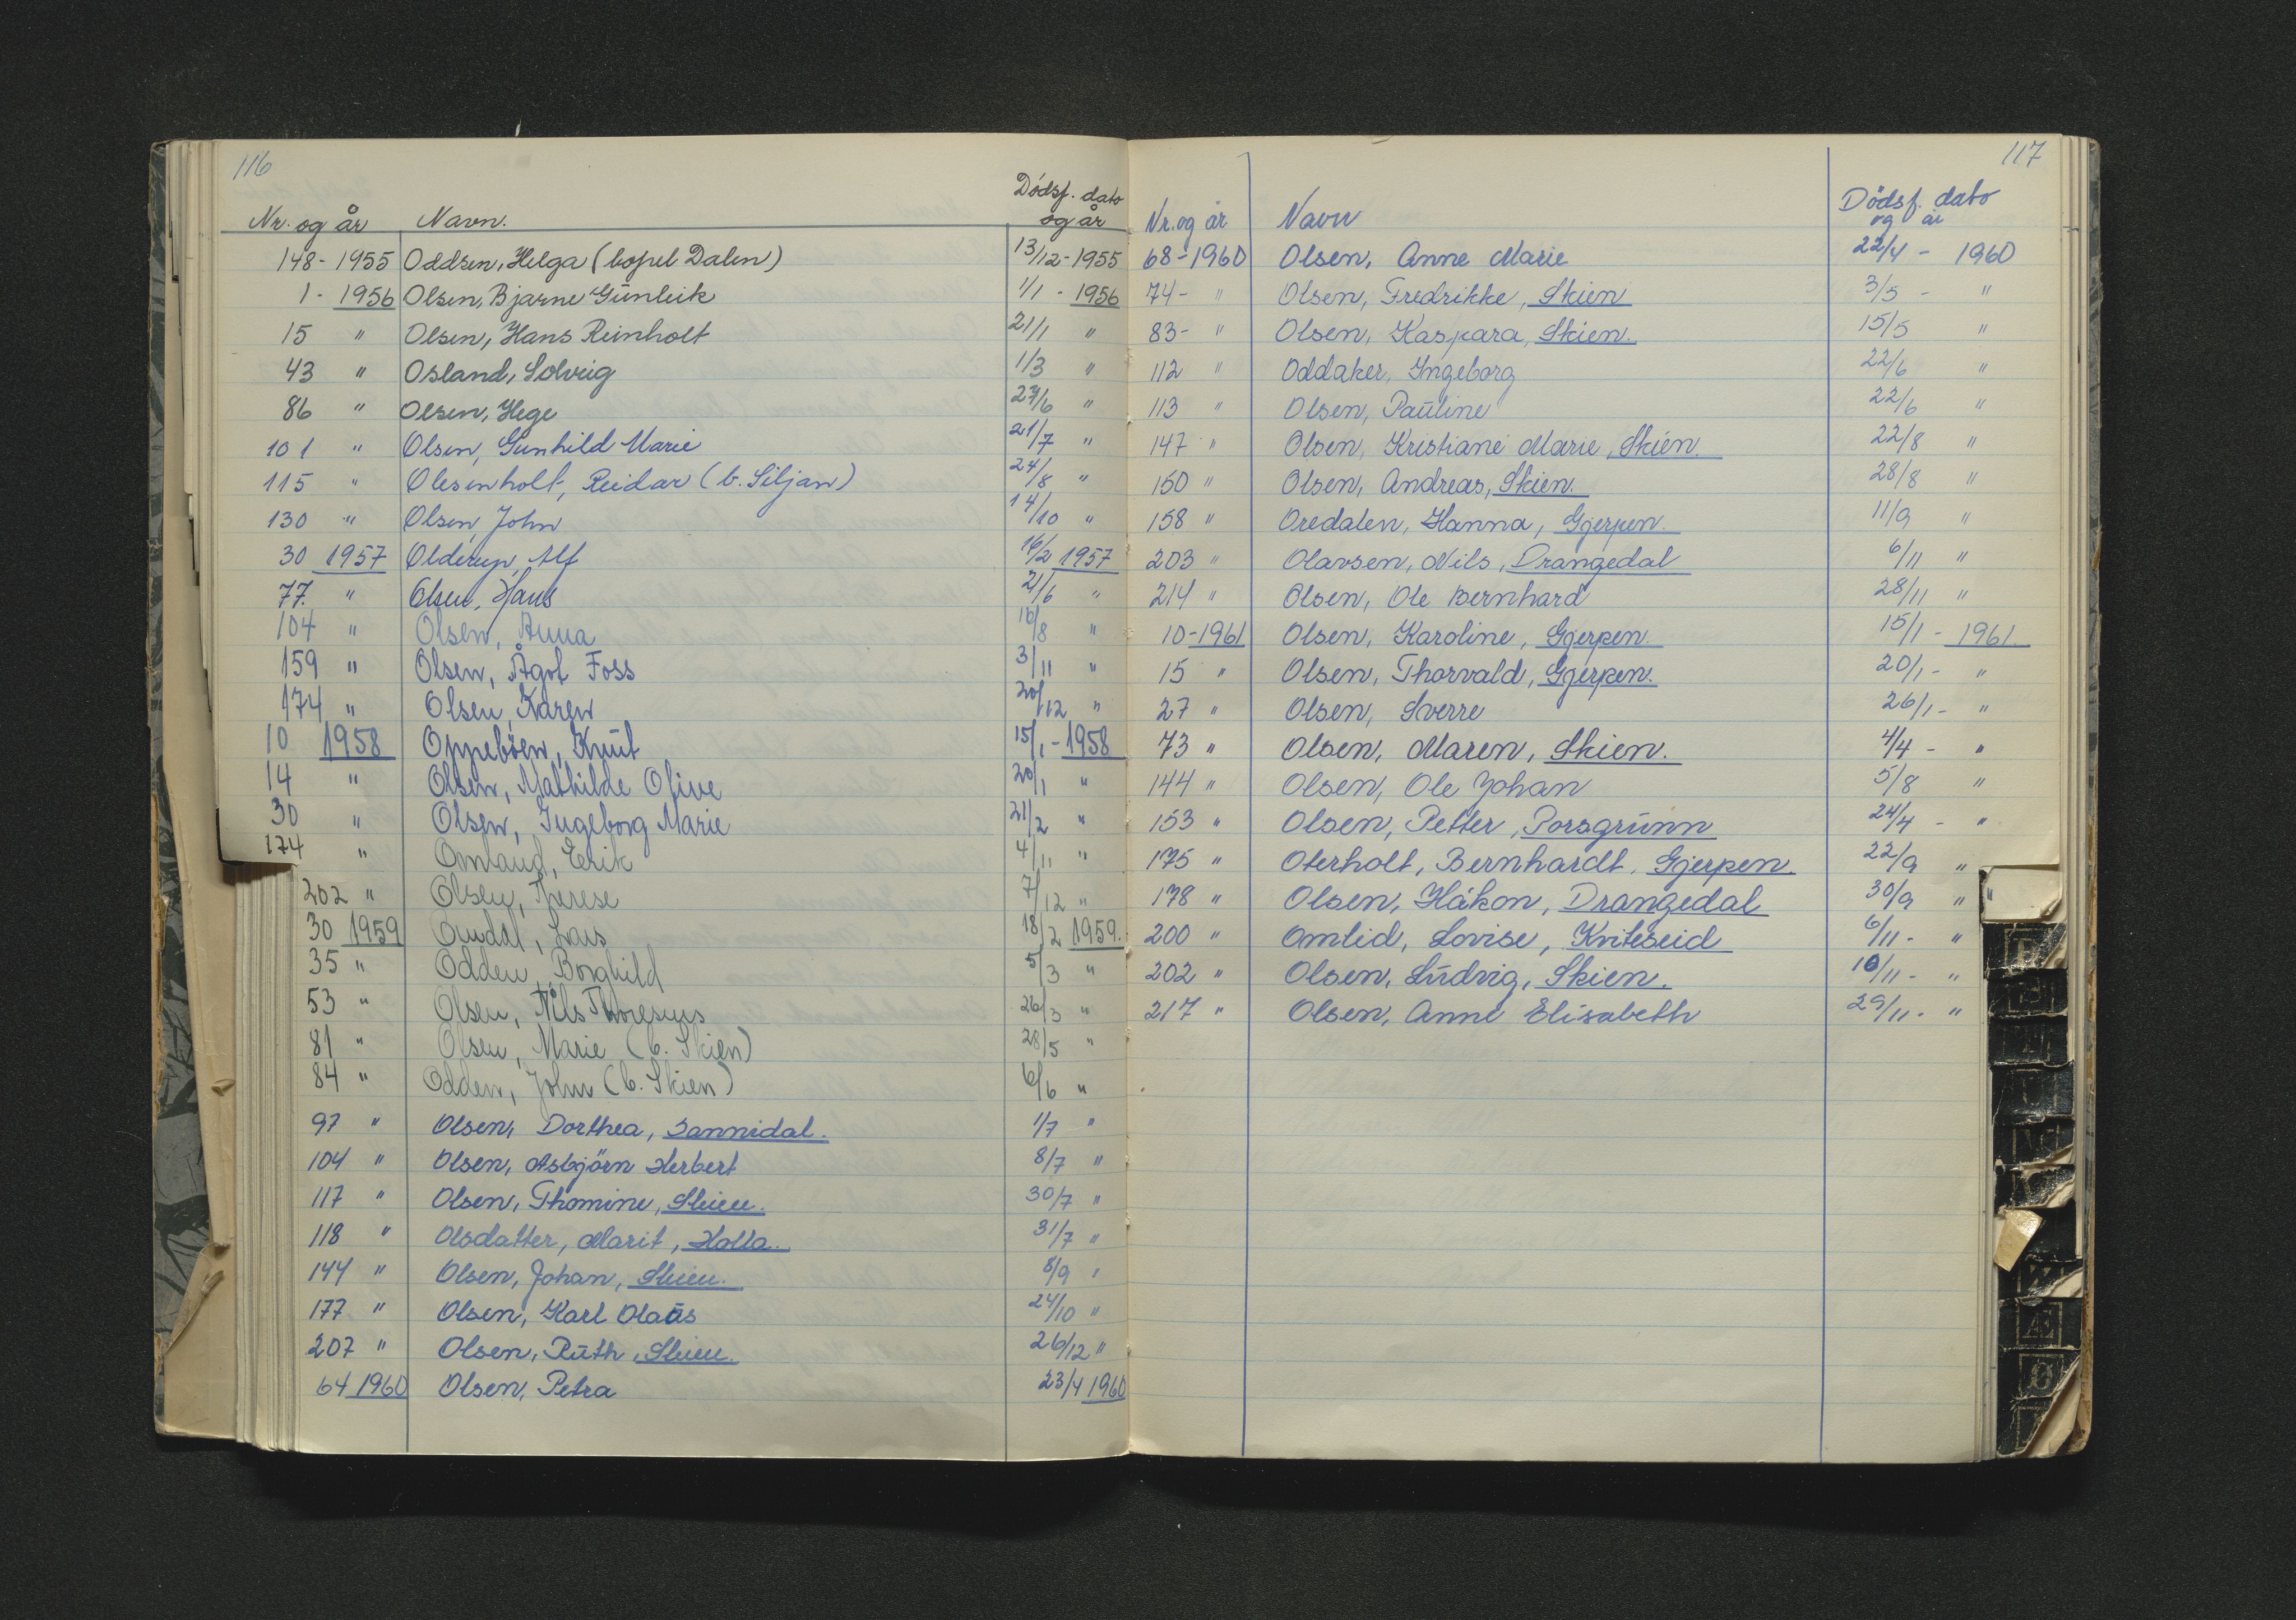 116
Nr. og år Navn. Dödsf. dato og år
148 - 1955 Oddsen, Helga (bopel Dalen) 13/12 - 1955
1 - 1956 Olsen, Bjarne Gunleik 1/1 - 1956
15 " Olsen, Hans Reinholt 21/1 "
43 " Osland, Solveig 1/3 "
86 " Olsen, Hege 27/6 "
101 " Olsen, Gunhild Marie 21/7 "
115 " Olesenholt, Reidar (b. Siljan) 24/8 "
130 " Olsen, John 14/10 "
30 1957 Olderup, Alf 16/2 1957
77. " Olsen, Hans 21/6 "
104 " Olsen, Anna 16/8 "
159 " Olsen, Ågot Foss 3/11 "
174 " Olsen, Karen 20/12 "
10 1958 Oppeböen, Knut 15/1 - 1958
14 " Olsen, Mathilde Olive 20/1 "
30 " Olsen, Ingeborg Marie 21/2 "
174 " Omland, Erik 4/11 "
202 " Olsen, Therese 7/12 "
30 1959 Omdal, Lars 18/2 1959.
35 " Odden, Borghild 5/3 "
53 " Olsen, Nils Thoresius 26/3 "
81 " Olsen, Marie (b. Skien) 28/5 "
84 " Odden, John (b. Skien) 6/6 "
97 " Olsen, Dorthea, Sannidal. 1/7 "
104 " Olsen, Asbjörn Herbert 8/7 "
117 " Olsen, Thomine, Skien. 30/7 "
118 " Olsdatter, Marit, Holla. 31/7 "
144 " Olsen, Johan, Skien. 8/9 "
177 " Olsen, Karl Olaus 24/10 "
207 " Olsen, Ruth, Skien. 26/12 "
64 1960 Olsen, Petra 23/4 1960
117
Nr. og år Navn Dödsf. dato og år
68 - 1960 Olsen, Anne Marie 22/4 - 1960
74 - " Olsen, Fredrikke, Skien 3/5 - "
83 - " Olsen, Kaspara, Skien. 15/5 "
112 " Oddaker, Ingeborg 22/6 "
113 " Olsen, Pauline 22/6 "
147 " Olsen, Kristiane Marie, Skien. 22/8 "
150 " Olsen, Andreas, Skien. 28/8 "
158 " Oredalen, Hanna, Gjerpen. 11/9 "
203 " Olavsen, Nils, Drangedal 6/11 "
214 " Olsen, Ole Bernhard 28/11 "
10 - 1961 Olsen, Karoline, Gjerpen. 15/1 - 1961.
15 " Olsen, Thorvald, Gjerpen. 20/1 - "
27 " Olsen, Sverre 26/1 - "
73 " Olsen, Maren, Skien. 4/4 - "
144 " Olsen, Ole Johan 5/8 "
153 " Olsen, Petter, Porsgrunn 24/4 - "
175 " Oterholt, Bernhardt, Gjerpen. 22/9 "
178 " Olsen, Håkon, Drangedal 30/9 "
200 " Omlid, Lovise, Kviteseid 6/11 - "
202 " Olsen, Ludvig, Skien. 10/11 - "
217 " Olsen, Anne Elisabeth 29/11 - "
Æ
Ø